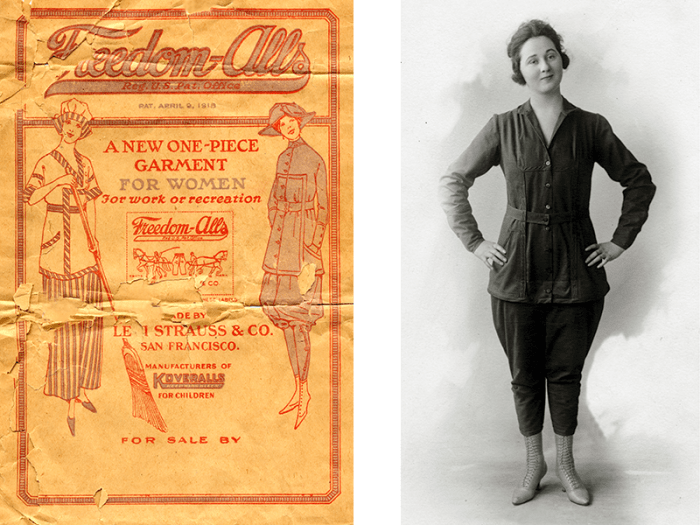 Freedom-Alls
Reg. U.S. Pat. Office
PAT. APRIL 9, 1918
A NEW ONE-PIECE
GARMENT
FOR WOMEN
For work or recreation
Freedom-Alls
& CO
DE BY
LE I STRAUSS & CO.
SAN FRANCISCO.
MANUFACTURERS OF
KOVERALLS
FOR CHILDREN
FOR SALE BY